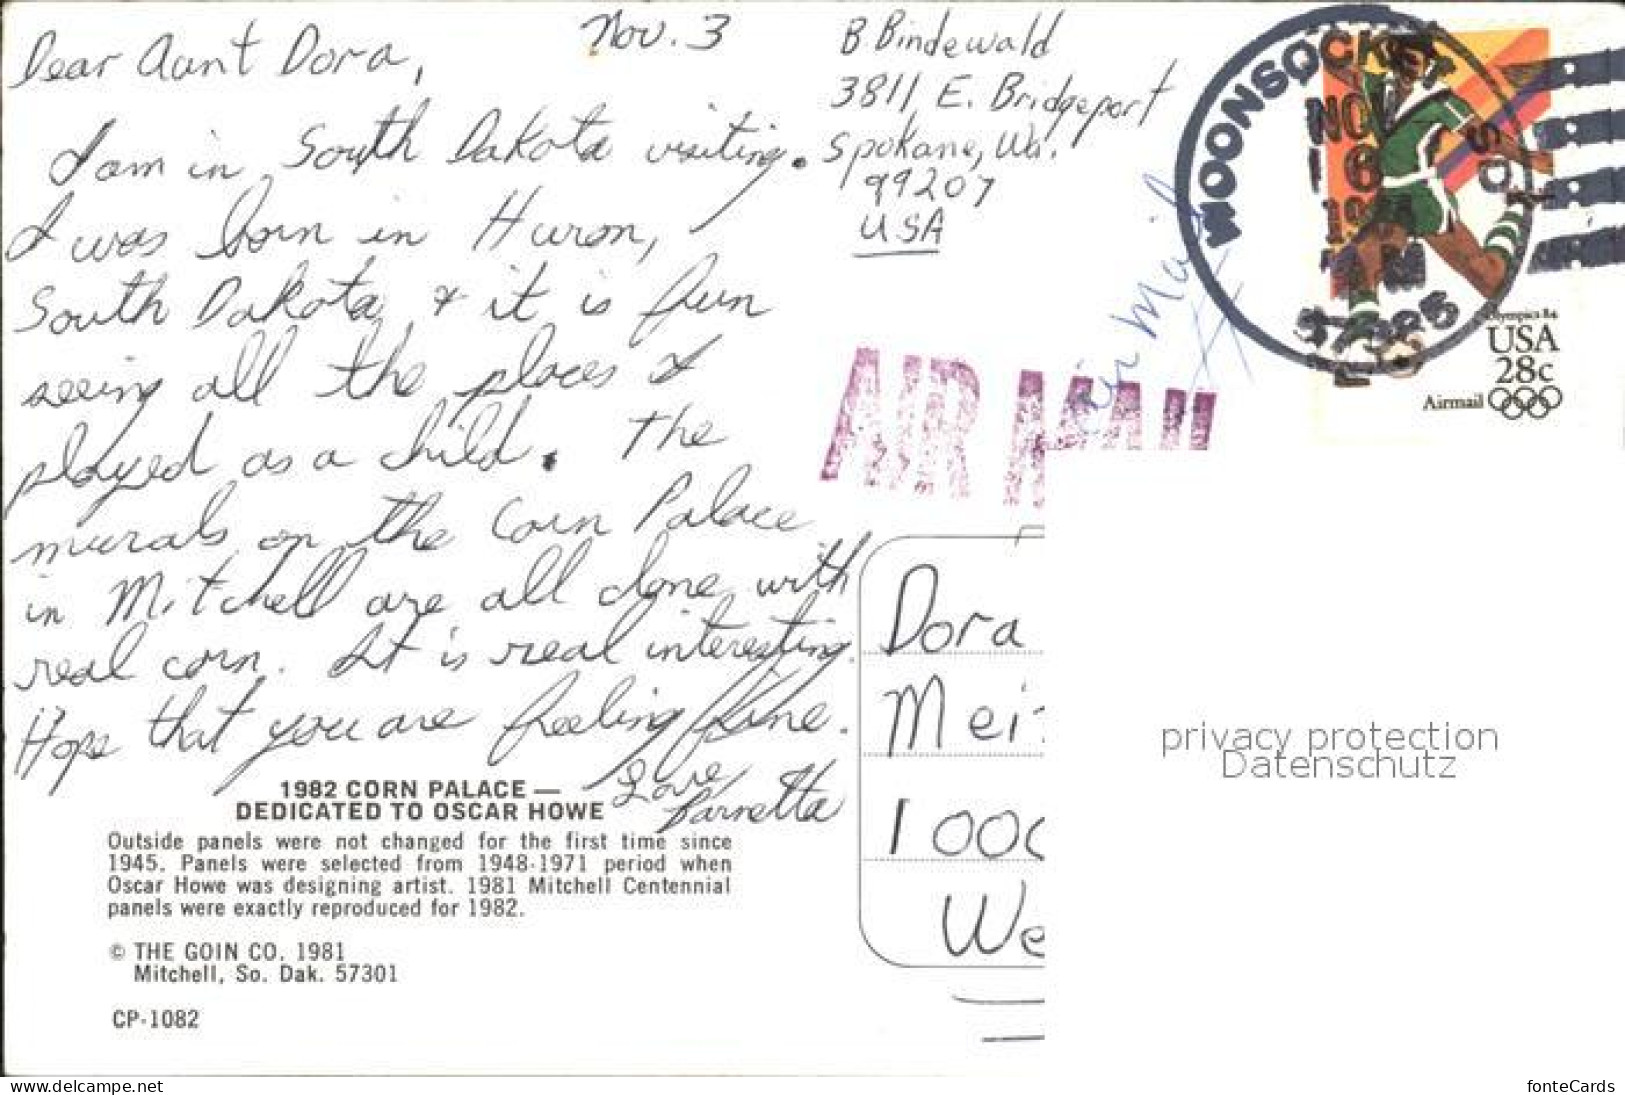 Nov. 3
Dear Aunt Dora,
I am in South Dakota visiting.
I was born in Huron,
South Dakota & it is fun
seeing all the places I
played as a child. The
murals on the Corn Palace
in Mitchell are all done with
real corn. It is real interesting.
Hope that you are feeling fine.
Love,
B Bindewald
3811 E. Bridgeport
Spokane, Wa.
99207
USA
Air Mail
AIR MAIL
WOONSOCKET SD
NOV
6
AM
57385
Olympics 84
USA
28c
Airmail
Dora
Mei
1000
We
1982 CORN PALACE —
DEDICATED TO OSCAR HOWE
Outside panels were not changed for the first time since
1945. Panels were selected from 1948-1971 period when
Oscar Howe was designing artist. 1981 Mitchell Centennial
panels were exactly reproduced for 1982.
© THE GOIN CO. 1981
Mitchell, So. Dak. 57301
CP-1082
privacy protection
Datenschutz
www.delcampe.net
fonteCards